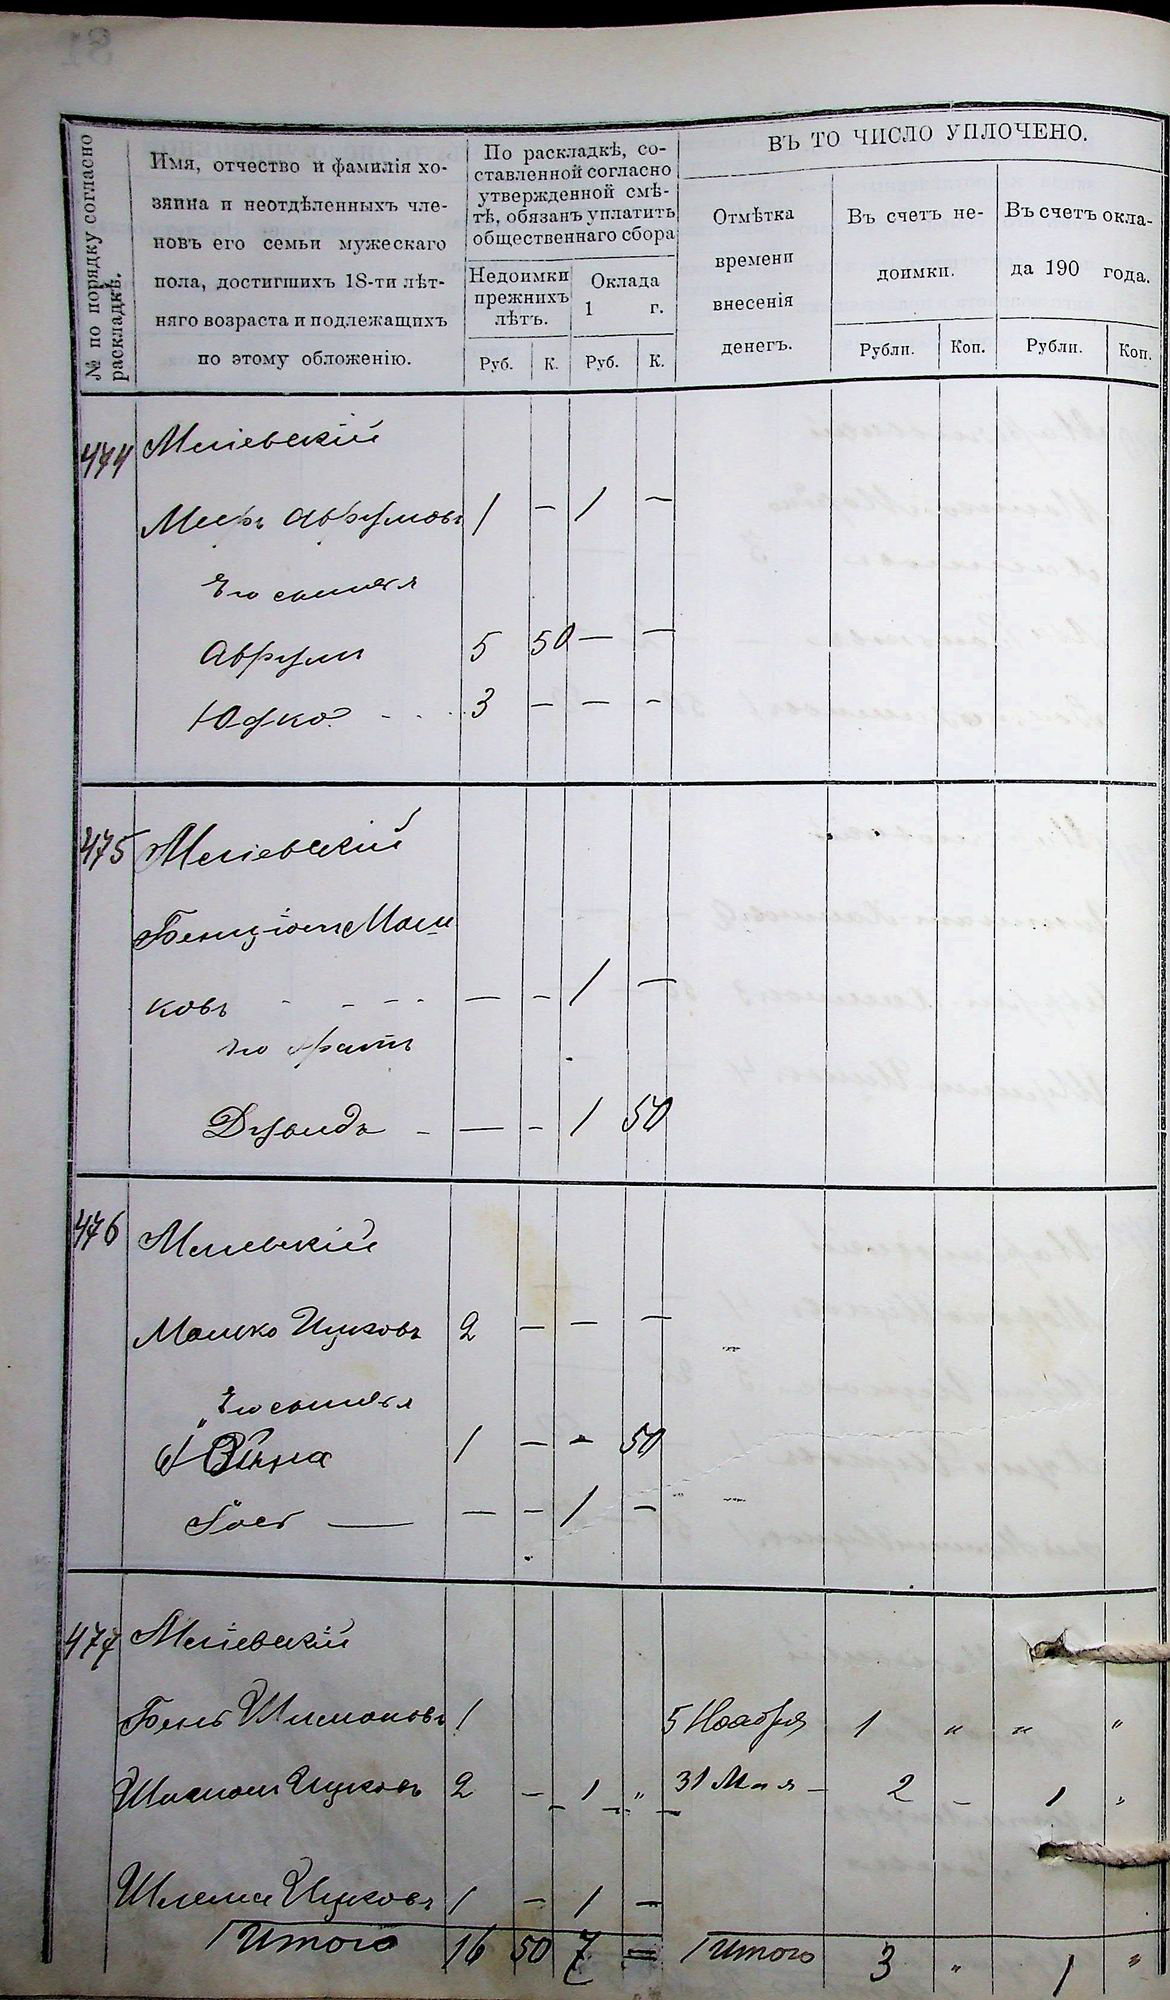 № по порядку согласно раскладкѣ.
Имя, отчество и фамилія хо-
зяина и неотдѣленныхъ чле-
новъ его семьи мужескаго
пола, достигшихъ 18-ти лѣт-
няго возраста и подлежащихъ
по этому обложенію.
По раскладкѣ, со-
ставленной согласно
утвержденной смѣ-
тѣ, обязанъ уплатить
общественнаго сбора
Недоимки
прежнихъ
лѣтъ.
Оклада
1 г.
Руб. К. Руб. К.
ВЪ ТО ЧИСЛО УПЛОЧЕНО.
Отмѣтка
времени
внесенія
денегъ.
Въ счетъ не-
доимки.
Въ счетъ окла-
да 190 года.
Рубли. Коп. Рубли. Коп.
474 Меліевскій
Мееръ Аврумовъ 1 — 1 —
Его сыновья
Аврумъ 5 50 — —
Юдко 3 — — —
475 Меліевскій
Бенціонъ Мош
ковъ — — 1 —
его братъ
Дувидъ — — 1 50
476 Меліевскій
Мошко Ицковъ 2 — — —
Его сыновья
1 — — 50
— — 1 —
477 Меліевскій
Шимоновъ 1 5 Ноября 1 " " "
Шимон Ицковъ 2 — 1 " 31 Мая — 2 — 1 "
Шлема Ицковъ 1 — 1 —
Итого 16 50 7 = Итого 3 " 1 "